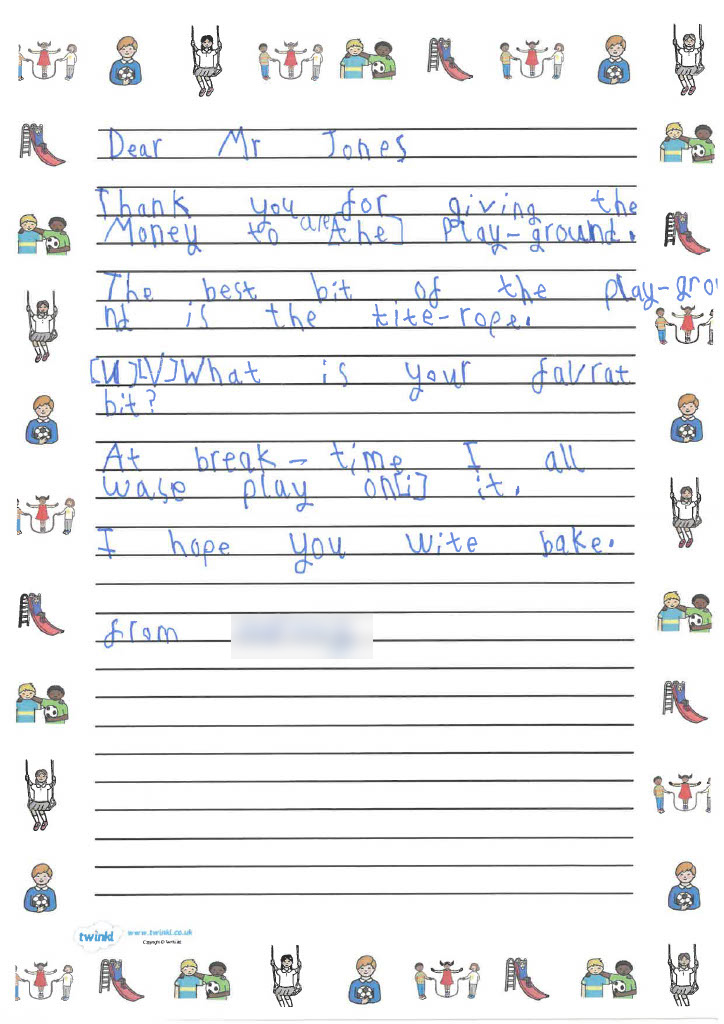 Dear Mr Jones
Thank you for giving the
Money to are [the] play-ground.
The best bit of the play-grou
nd is the tite-rope.
[U][V]What is your favrat
bit?
At break-time I all
wase play on[i] it.
I hope you wite bake.
from
twinkl
www.twinkl.co.uk